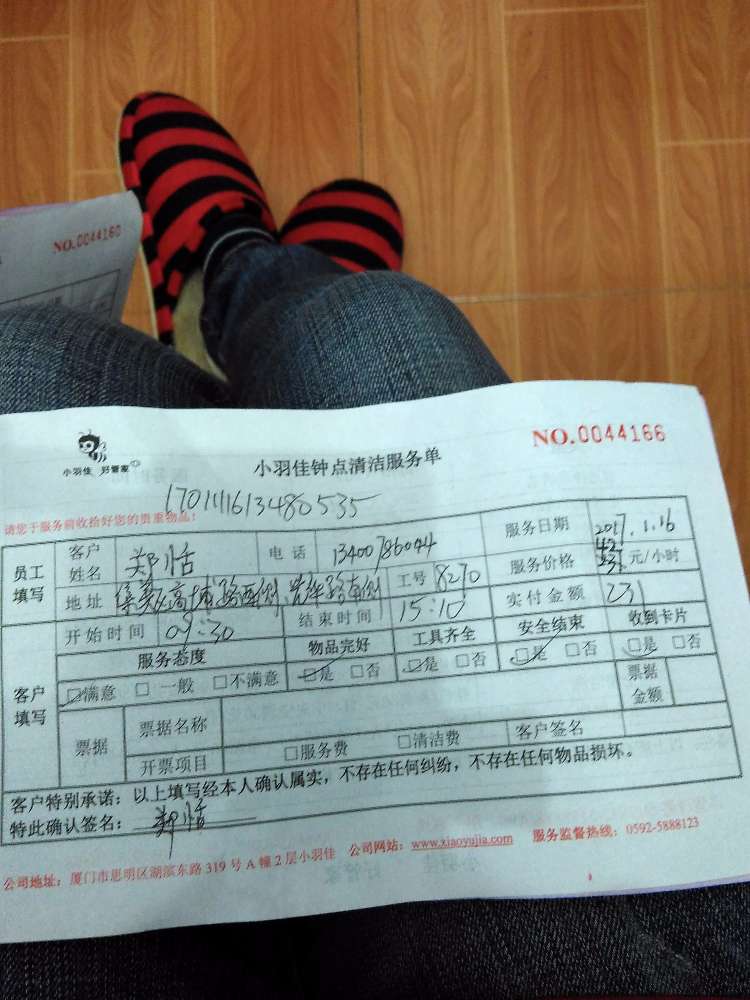 NO.0044160
小羽佳 好管家
小羽佳钟点清洁服务单
NO.0044166
170111613480535
请您于服务前收拾好您的贵重物品!
员工填写 客户姓名 郑恬 电话 13400786044 服务日期 2017.1.16
地址 集美 高 路西侧、 路南侧 工号 8270 服务价格 42 元/小时
开始时间 09:30 结束时间 15:10 实付金额 231
客户填写 服务态度 物品完好 工具齐全 安全结束 收到卡片
☑满意 □一般 □不满意 ☑是 □否 ☑是 □否 ☑是 □否 ☑是 □否
票据 票据名称 票据金额
开票项目 □服务费 □清洁费 客户签名
客户特别承诺:以上填写经本人确认属实,不存在任何纠纷,不存在任何物品损坏。
特此确认签名: 郑恬
公司地址:厦门市思明区湖滨东路319号A幢2层小羽佳 公司网站:www.xiaoyujia.com 服务监督热线:0592-5888123